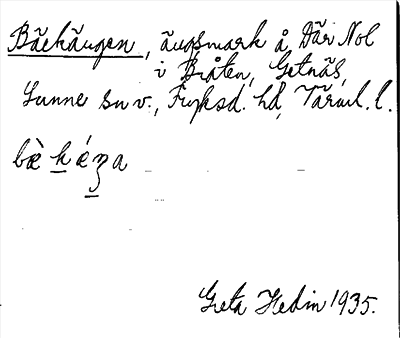 Bäckängen, ängsmark å Där Nol
i Bråten, Getnäs,
Sunne sn v., Fryksd. hd, Värml. l.
Greta Hedin 1935.